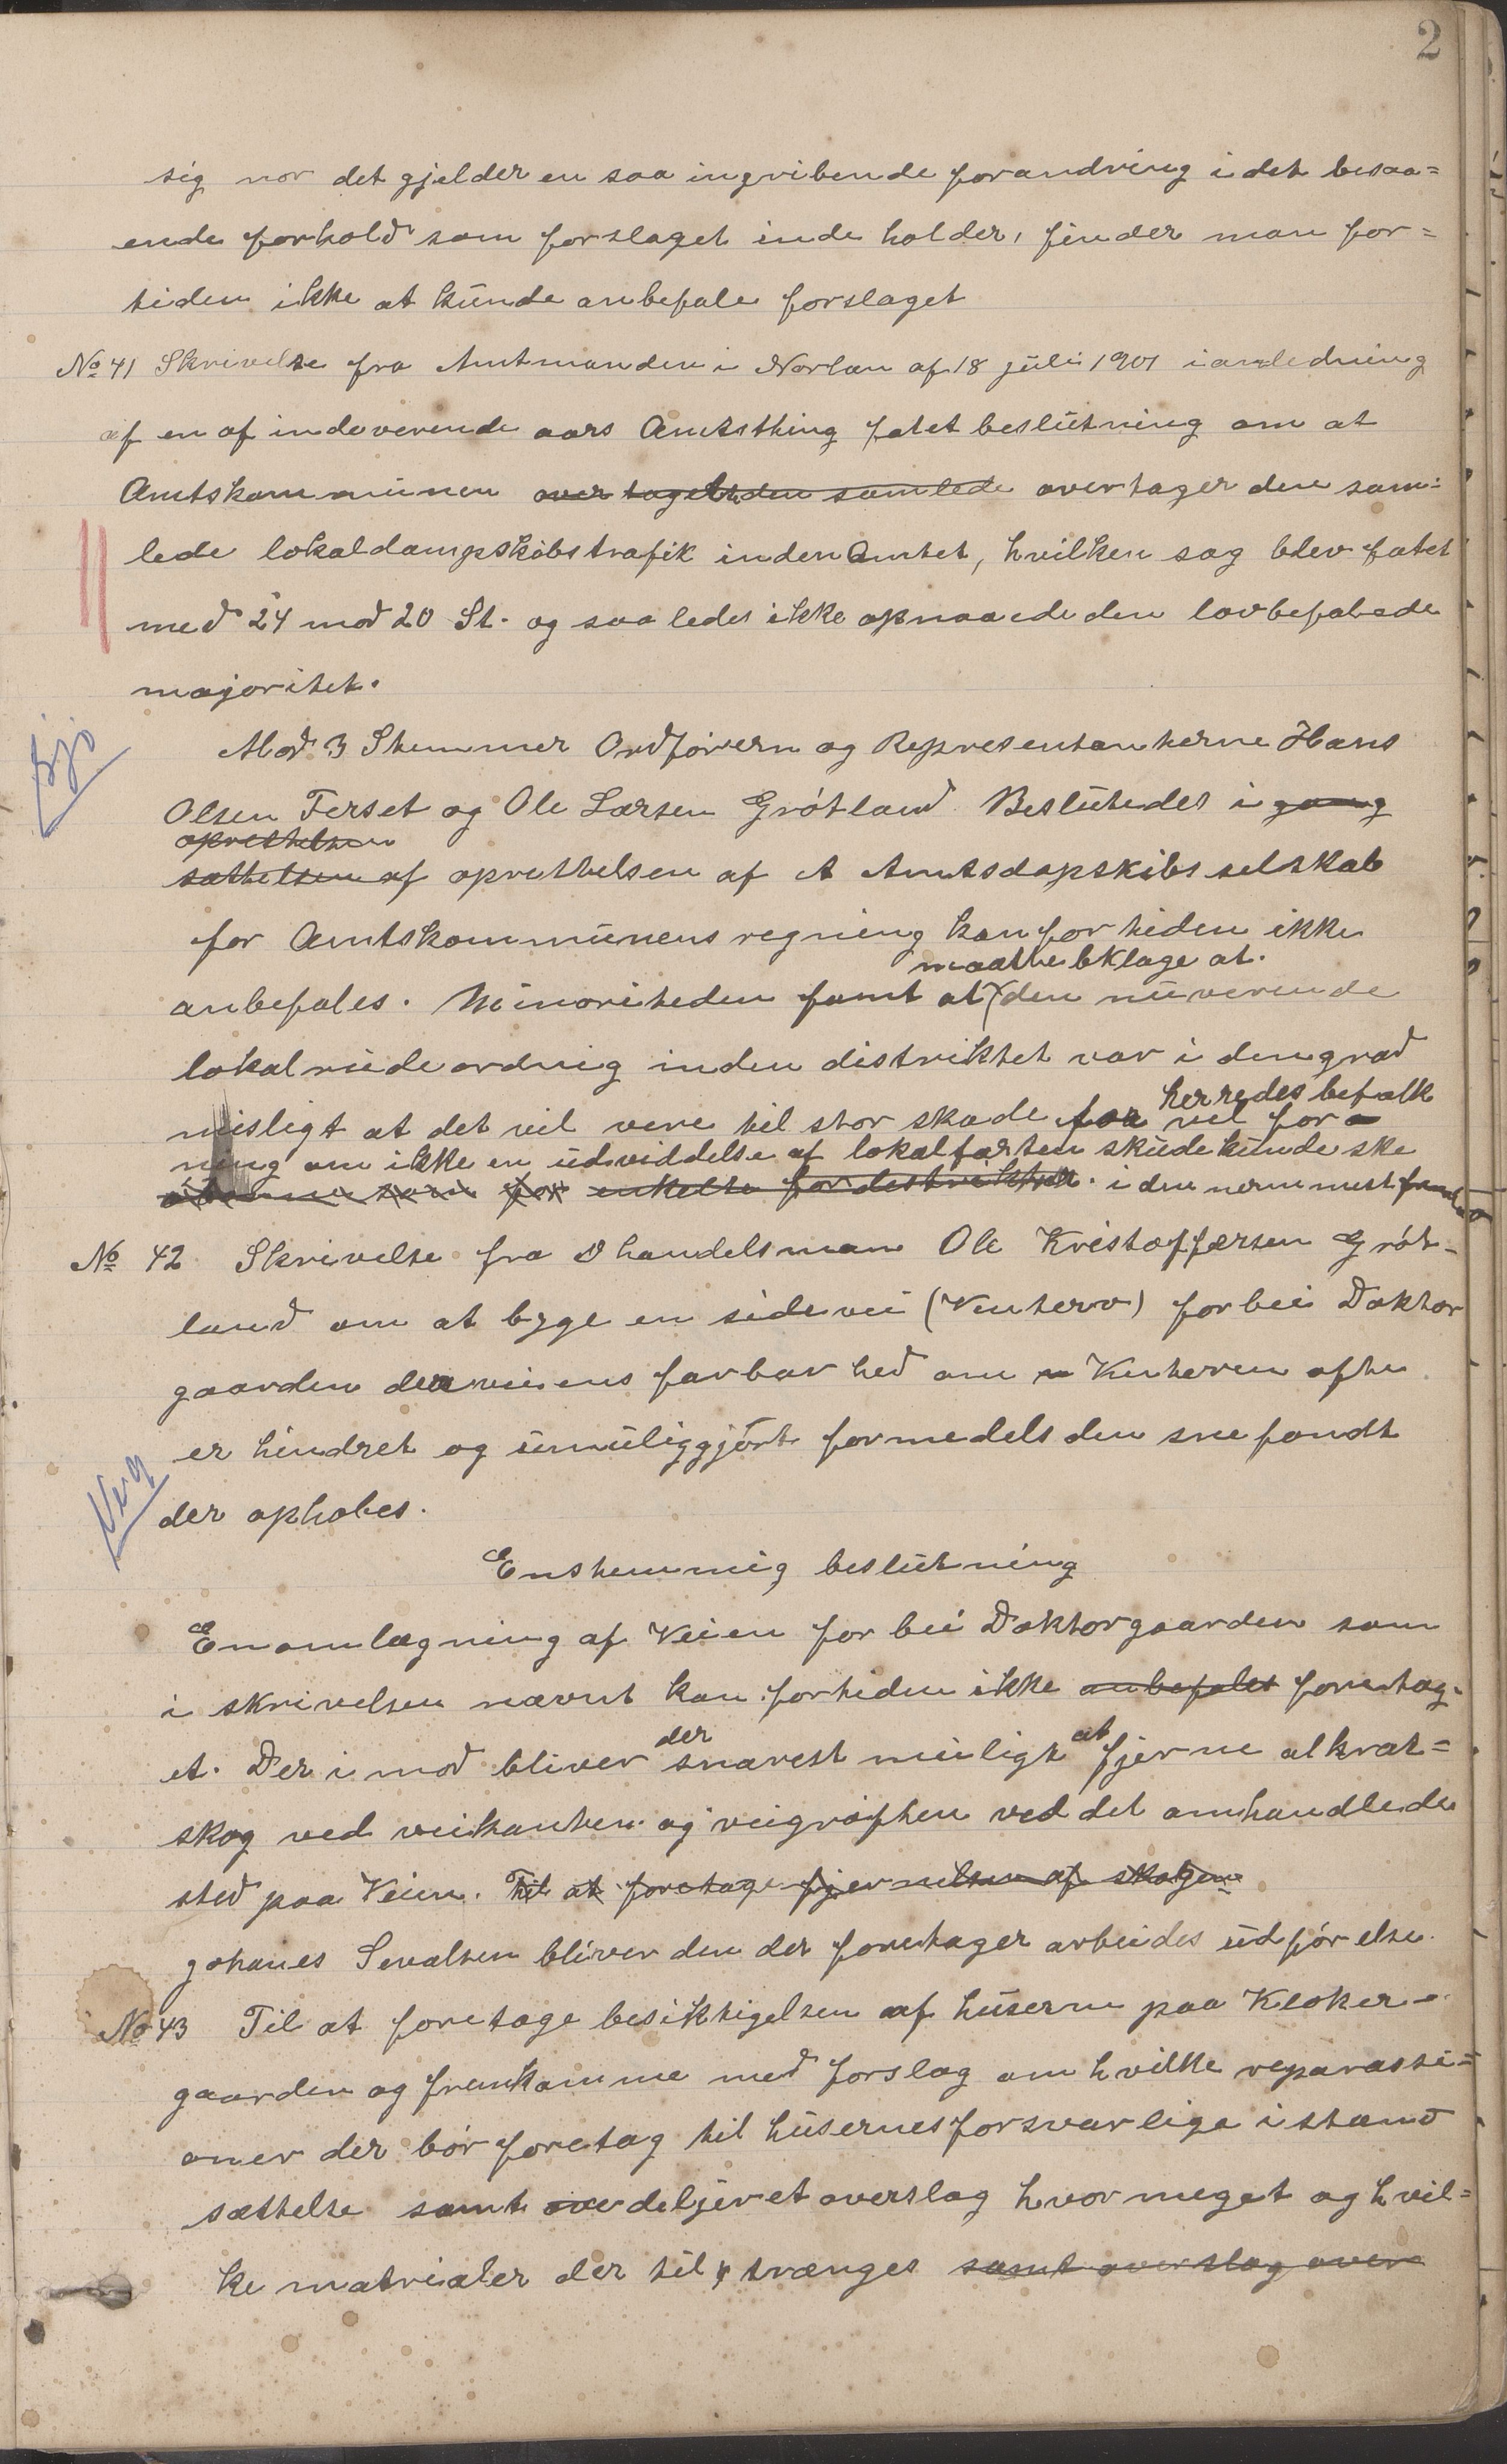 2
sig nor det gjelder en saa ingribende forandring i det besaa=
ende forhold som forslaget inde holder, finder man for=
tiden ikke at kunde anbefale forslaget
No 41 Skrivelse fra Amtmanden i Norlan af 18 juli 1901 i anledning
af en af indeverende aars Amtsthing fatet beslutning om at
Amtskommunen over taget den samlede overtager den sam=
lede lokaldampskibstrafik inden Amtet, hvilken sag blev fatet
med 24 mod 20 St. og saa ledes ikke opnaaede den lovbefalede
majoritet.
Mod 3 Stemmer Ordførern og Representanterne Hans
Olsen Ferset og Ole Larsen Grøtland Beslutedes i gang
oprettelsen
sættelsen af oprettelsen af et Amtsdapskibs selskab
for Amtskommunens regning kan for tiden ikke
maatte bklage at.
anbefales. Minoriteden famt at den nuverende
lokalrudeordnig inden distriktet var i den grad
herredes befalk
misligt at det vil vere til stor skade for vel for
ning om ikke en udviddelse af lokalfarten skude kunde ske
enkelte for destrikter. i den nermmest
No 42 Skrivelse fra handelsman Ole Kristoffersen Grøt-
land om at byge en sidevei (Vinterv) forbei Doktor
gaarden da veiens farbar hed om Vinteren ofte
er hindret og umuliggjørt formedels den snefondt
Veg
der ophobes.
Enstemmig beslutning
En omlægning af Veien for bei Doktorgaarden som
i skrivelsen nævnt kan fortiden ikke anbefales foretag-
der at
et. Der i mod bliver snarest muligt fjerne al krat=
skog ved veikanten og veigrøften ved det omhandlede
sted paa Veien. Til at foretage fjernelsen af skogen
Johanes Sevalsen bliver den der foretager arbeides udførelse.
No 43 Til at foretage besiktigelsen af huserne paa Kloker-
gaarden og fremkomme med forslag om hvilke reparassi=
oner der bør foretag til husernes forsvarlige i stand
sættelse samt over deljeret overslag hvor meget og hvil=
ke matrialer der til trænges samt overslag over